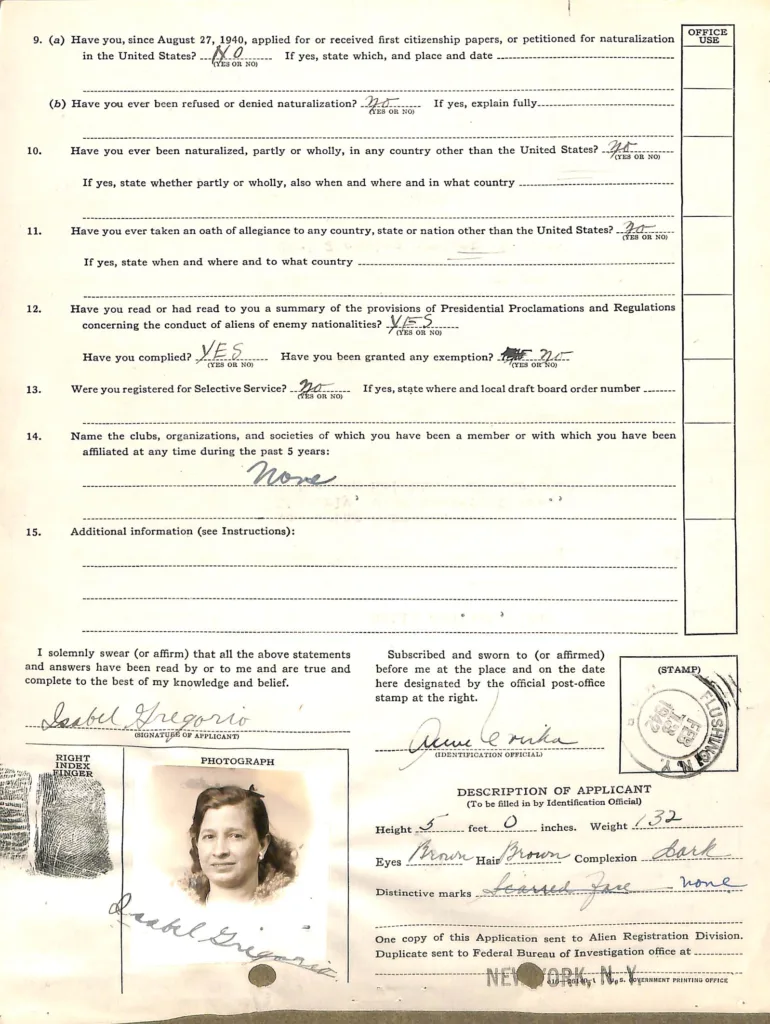 OFFICE
USE
9. (a) Have you, since August 27, 1940, applied for or received first citizenship papers, or petitioned for naturalization
in the United States? NO If yes, state which, and place and date
(YES OR NO)
(b) Have you ever been refused or denied naturalization? No If yes, explain fully
(YES OR NO)
10. Have you ever been naturalized, partly or wholly, in any country other than the United States? No
(YES OR NO)
If yes, state whether partly or wholly, also when and where and in what country
11. Have you ever taken an oath of allegiance to any country, state or nation other than the United States? No
(YES OR NO)
If yes, state when and where and to what country
12. Have you read or had read to you a summary of the provisions of Presidential Proclamations and Regulations
concerning the conduct of aliens of enemy nationalities? YES
(YES OR NO)
Have you complied? YES Have you been granted any exemption? NO
(YES OR NO) (YES OR NO)
13. Were you registered for Selective Service? No If yes, state where and local draft board order number
(YES OR NO)
14. Name the clubs, organizations, and societies of which you have been a member or with which you have been
affiliated at any time during the past 5 years:
None
15. Additional information (see Instructions):
I solemnly swear (or affirm) that all the above statements
and answers have been read by or to me and are true and
complete to the best of my knowledge and belief.
Isabel Gregorio
(SIGNATURE OF APPLICANT)
Subscribed and sworn to (or affirmed)
before me at the place and on the date
here designated by the official post-office
stamp at the right.
(IDENTIFICATION OFFICIAL)
(STAMP)
FLUSHING N.Y.
FEB
1942
RIGHT
INDEX
FINGER
PHOTOGRAPH
Isabel Gregorio
DESCRIPTION OF APPLICANT
(To be filled in by Identification Official)
Height 5 feet 0 inches. Weight 132
Eyes Brown Hair Brown Complexion Dark
Distinctive marks Scarred Face none
One copy of this Application sent to Alien Registration Division.
Duplicate sent to Federal Bureau of Investigation office at
NEW YORK, N.Y.
U. S. GOVERNMENT PRINTING OFFICE